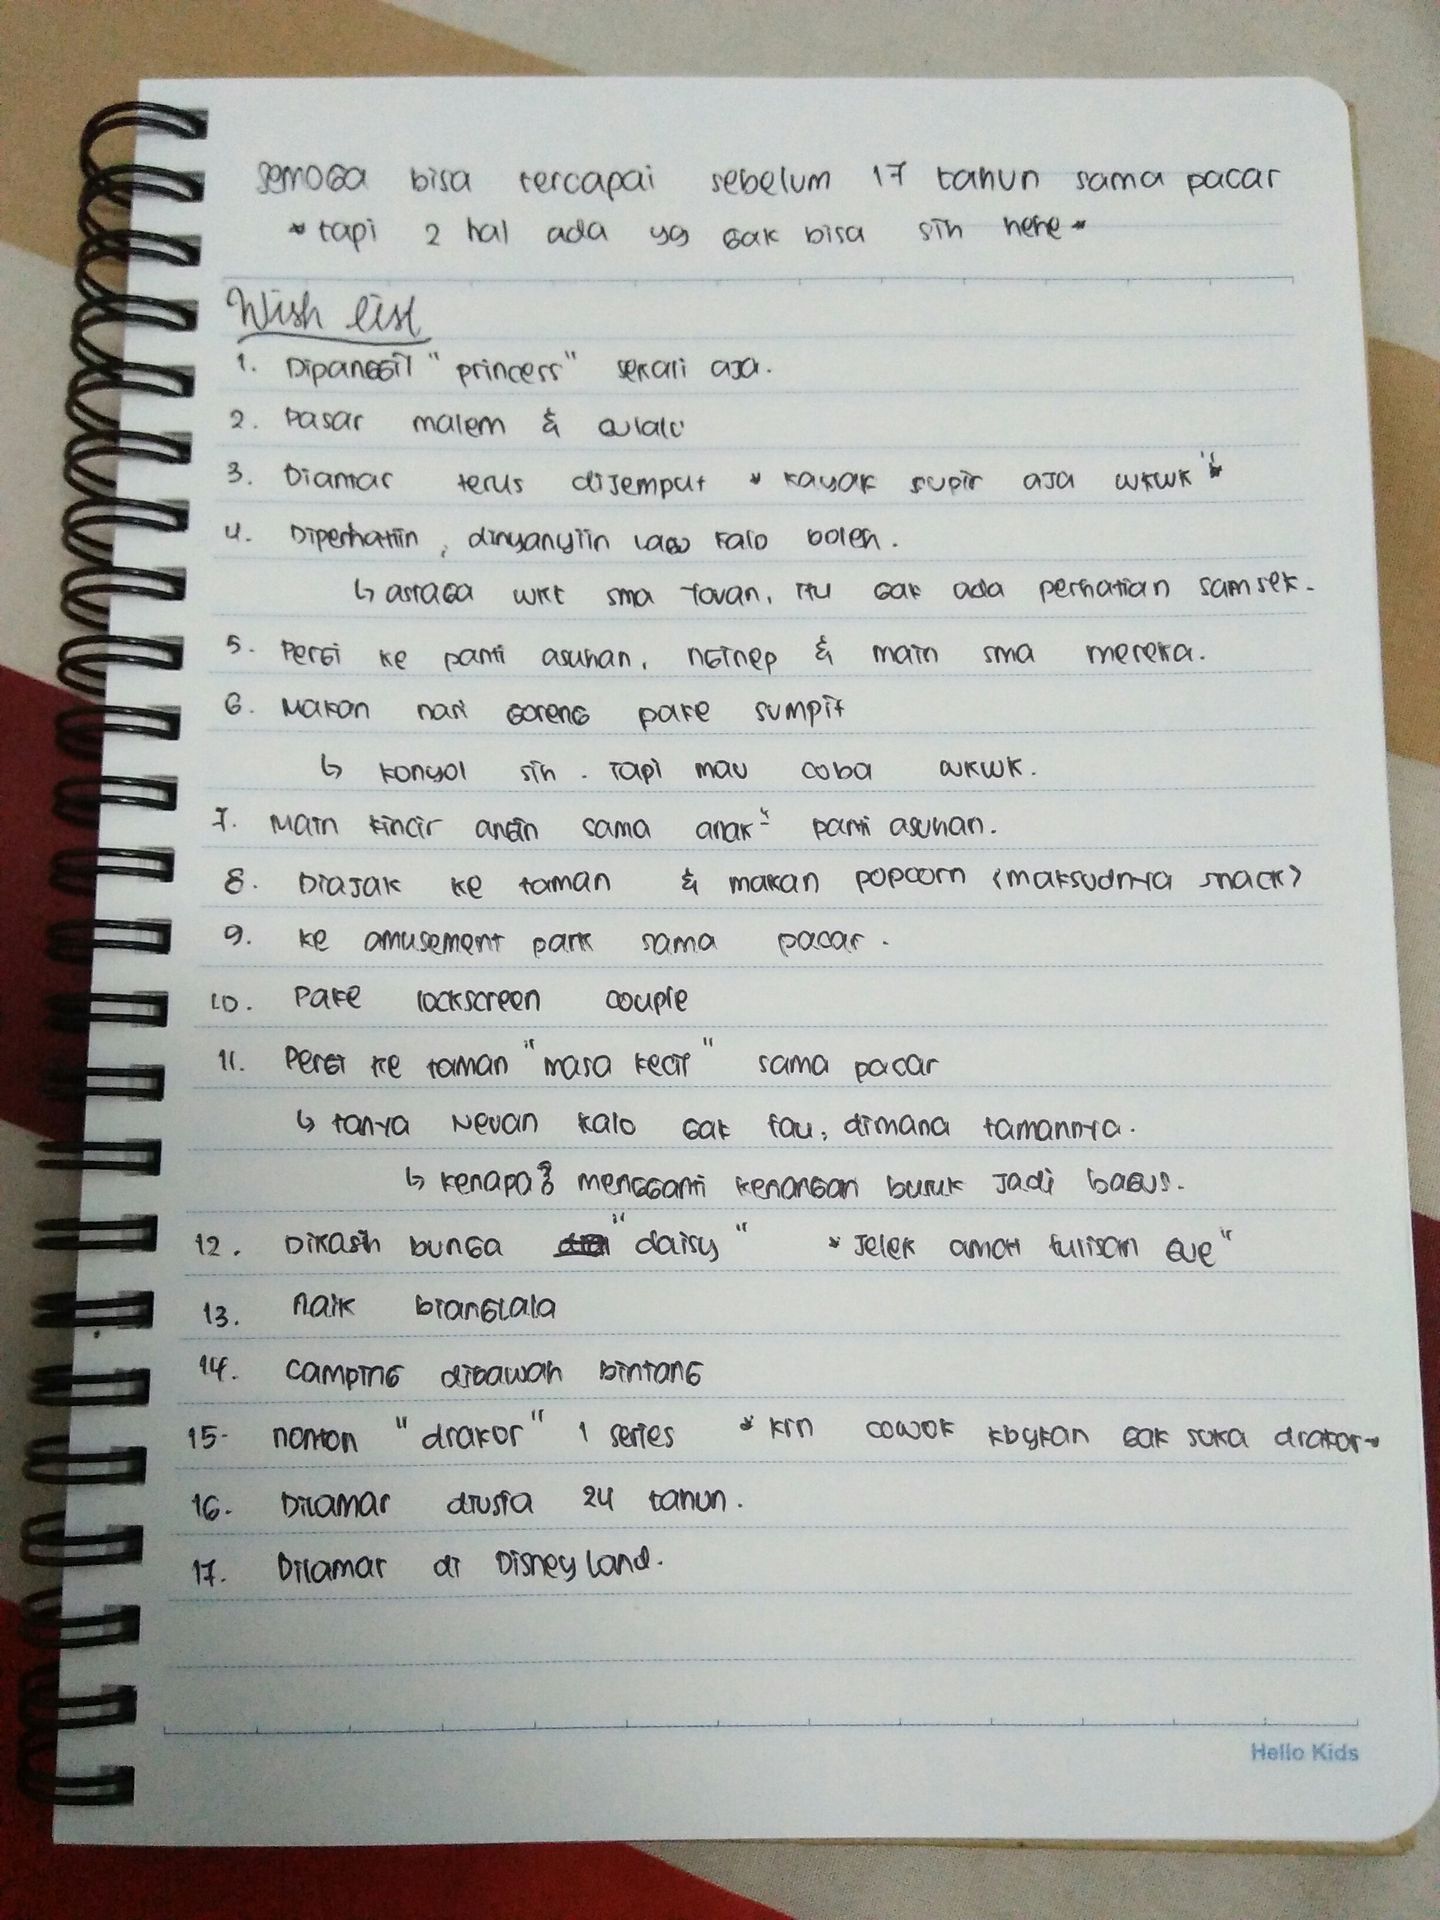 semoga bisa tercapai sebelum 17 tahun sama pacar
*tapi 2 hal ada yg gak bisa sih hehe*
Wish list
1. Dipanggil "princess" sekali aja.
2. Pasar malem &
3. Diamar terus dijemput *kayak supir aja wkwk"*
4. Diperhatiin, dinyanyiin lagu kalo boleh.
↳ astaga wkt sma Jovan, itu gak ada perhatian samsek.
5. Pergi ke panti asuhan, nginep & main sma mereka.
6. Makan nasi goreng pake sumpit
↳ konyol sih. Tapi mau coba wkwk.
7. Main kincir angin sama anak² panti asuhan.
8. Diajak ke taman & makan popcorn (maksudnya snack)
9. ke amusement park sama pacar.
10. Pake lockscreen couple
11. Pergi ke taman "masa kecil" sama pacar
↳ tanya Nevan kalo gak tau, dimana tamannya.
↳ kenapa? mengganti kenangan buruk jadi bagus.
12. Dikasih bunga "daisy" *Jelek amat tulisan gue"
13. naik bianglala
14. camping dibawah bintang
15. nonton "drakor" 1 series *krn cowok kbykan gak suka drakor*
16. Dilamar diusia 24 tahun.
17. Dilamar di Disney land.
Hello Kids